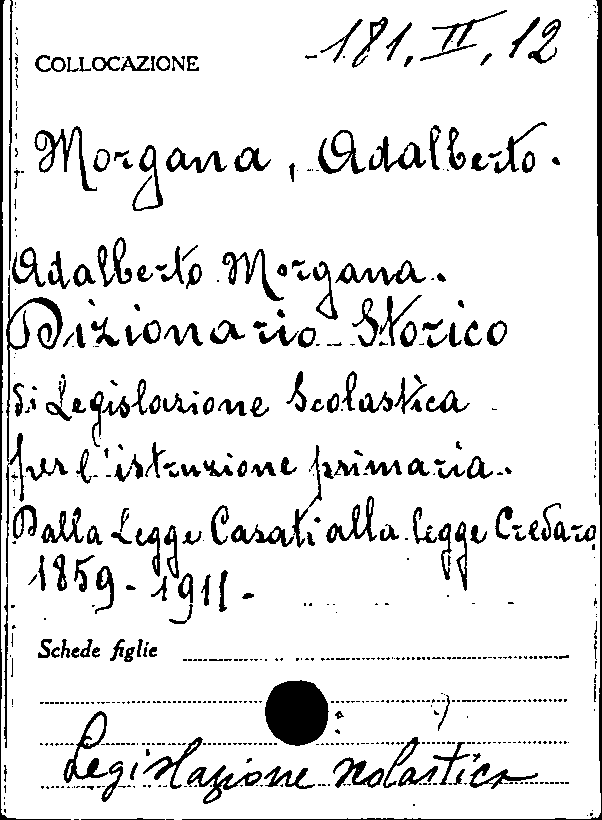 COLLOCAZIONE 181, II, 12
Morgana, Adalberto.
Adalberto Morgana.
Dizionario Storico
di Legislazione Scolastica
per l'istruzione primaria.
Dalla Legge Casati alla legge Credaro
1859 - 1911 -
Schede figlie
Legislazione scolastica